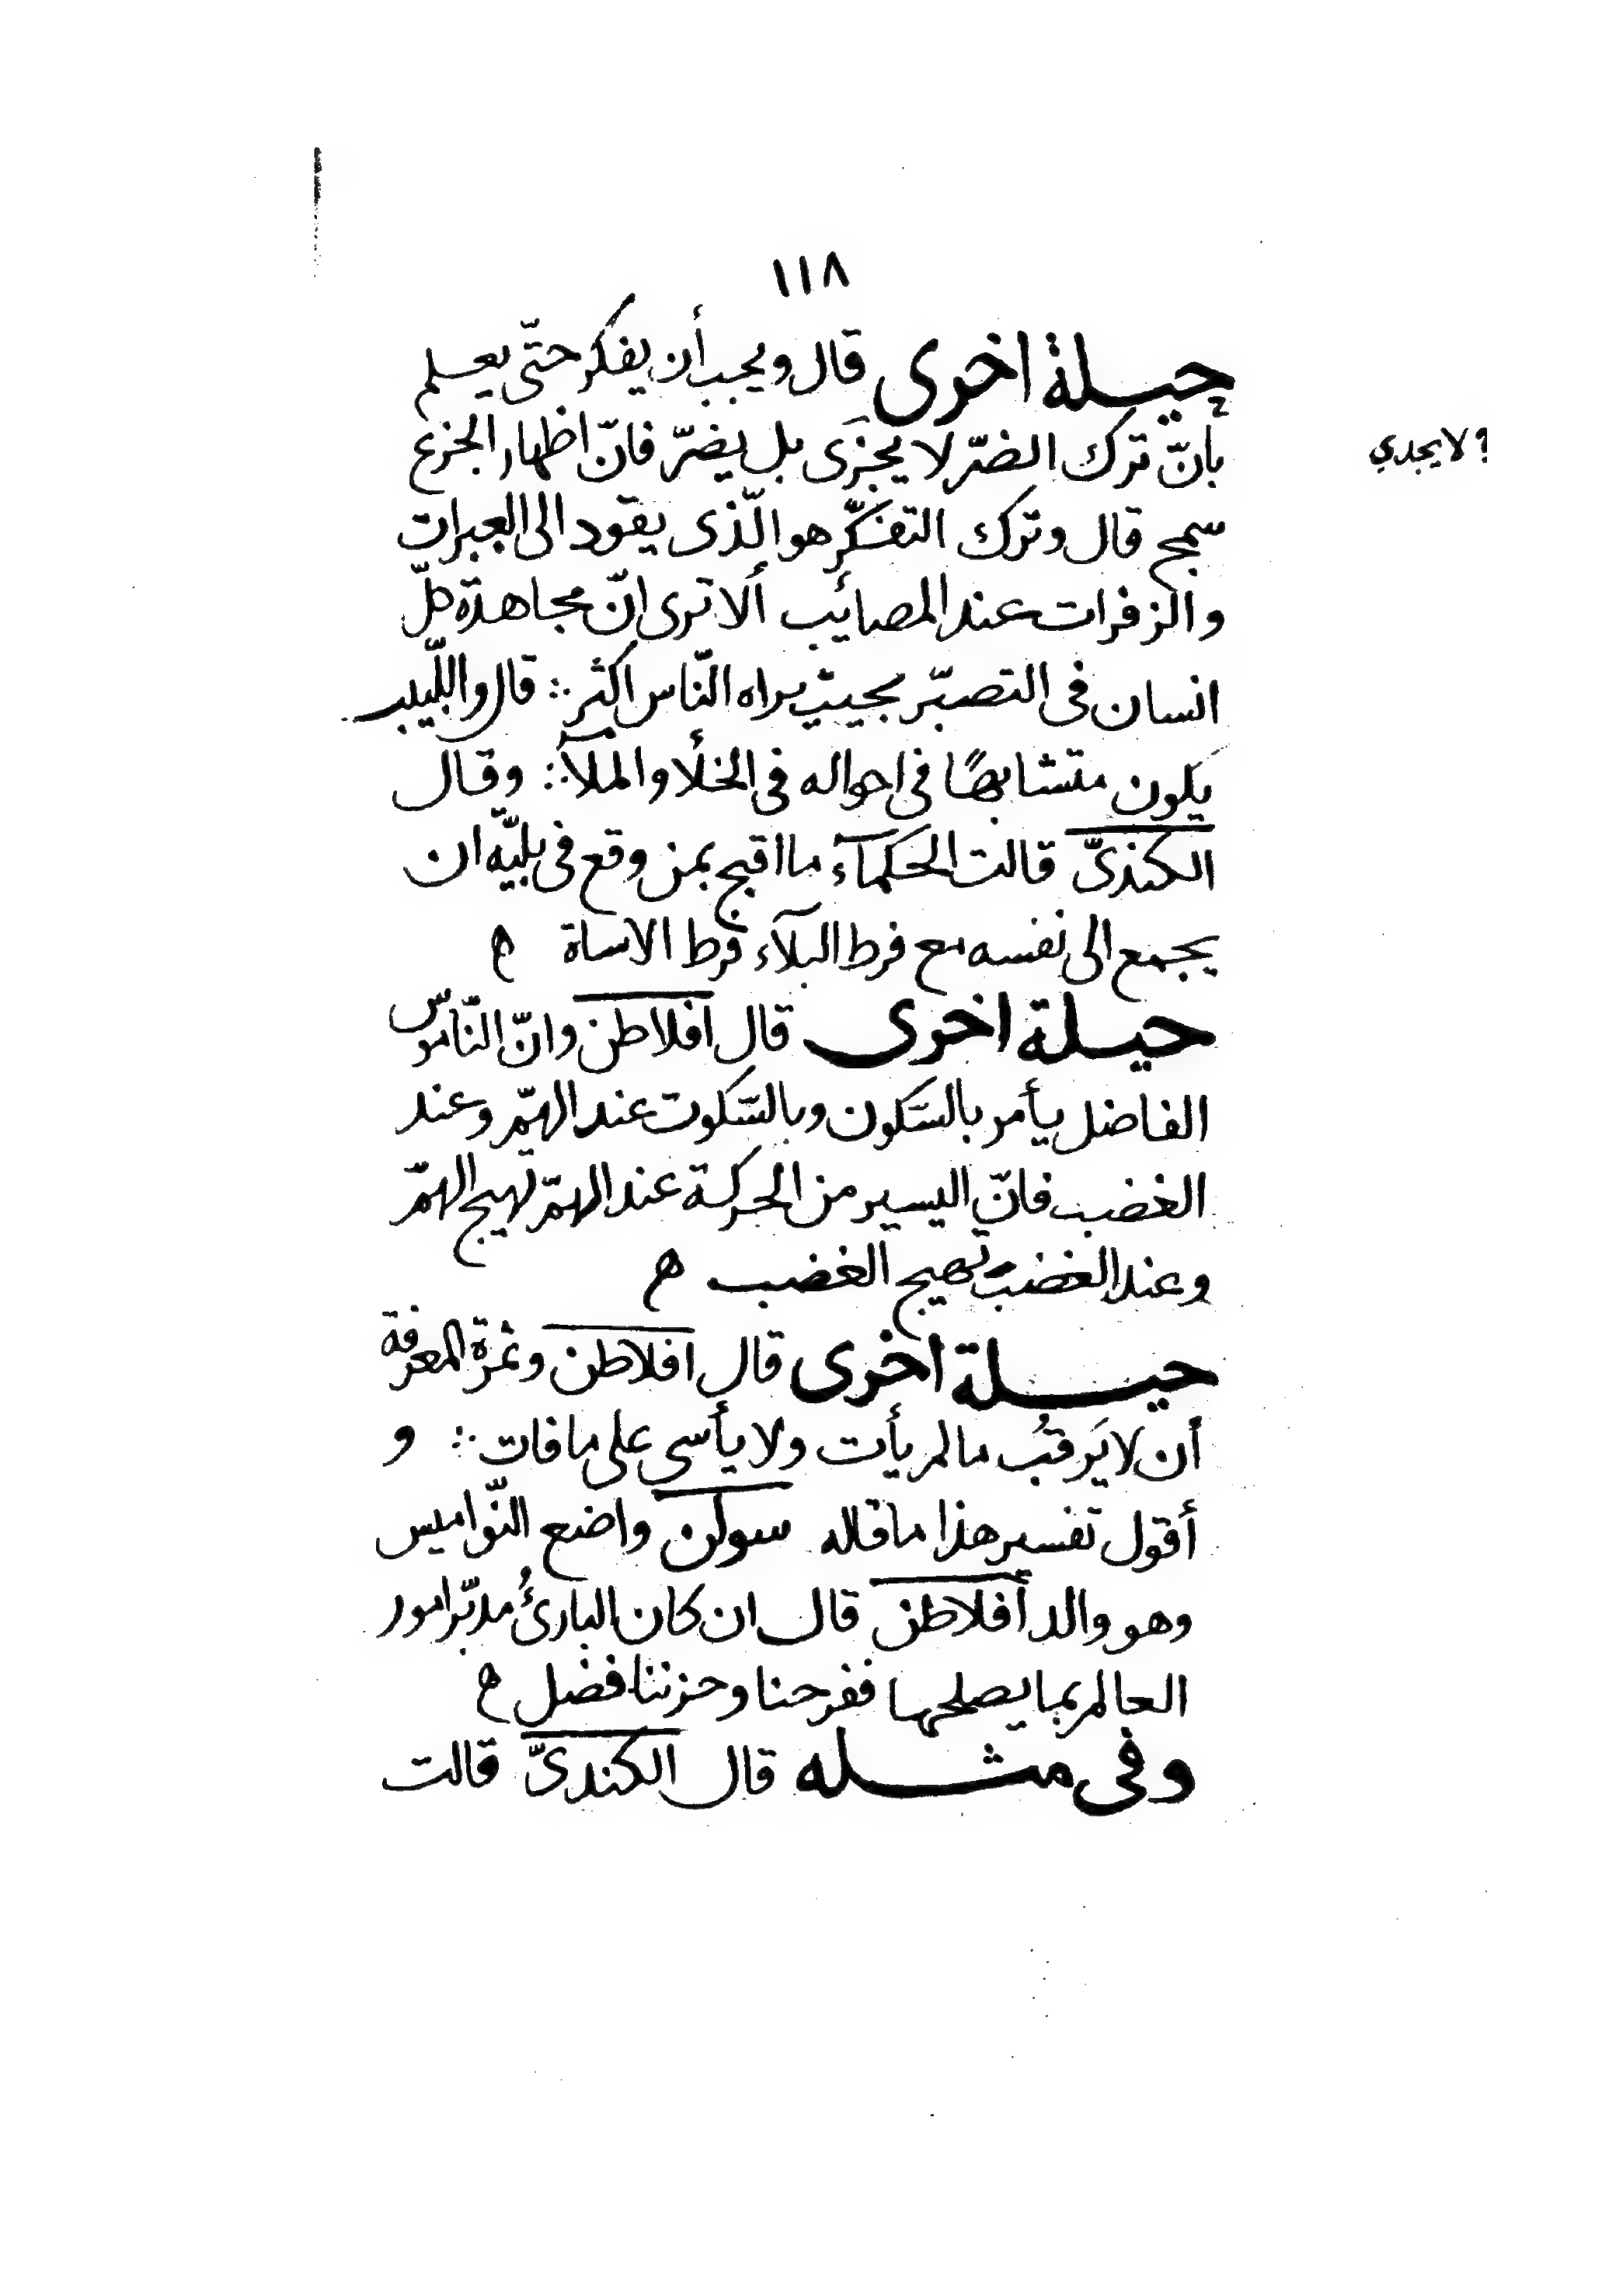 ١١٨
حيلة اخرى قال ويجب أن يفكر حتّى يعلم
بأنّ ترك الضرّ لا يجزى بل يضرّ فانّ اظهار الجزع
؟ لا يجدي
سمج قال وترك التفكّر هو الّذى يقود الى العبرات
والزفرات عند المصائب ألا ترى انّ مجاهدة كلّ
انسان فى التصبّر بحيث يراه النّاس اكثر ∴ قال واللّبيب
يكون متشابهًا فى احواله فى الخلأ والملأ ∴ وقال
الكندىّ قالت الحكمآء ما اقبح بمن وقع فى بليّه ان
يجمع الى نفسه مع فرط البلآء فرط الاساة ه
حيلة اخرى قال افلاطن وانّ النّاموس
الفاضل يأمر بالسّكون وبالسّكوت عند الهمّ وعند
الغضب فانّ اليسير من الحركة عند الهمّ تهيج الهمّ
وعند الغضب تهيج الغضب ه
حيلة اخرى قال افلاطن وثمرة المعرفة
أن لا يَرقبُ ما لم يأت ولا يأسى على ما فات ∴ و
أقول تفسير هذا ما قاله سولن واضع النّواميس
وهو والد أفلاطن قال ان كان البارئُ مدبّر امور
العالم بما يصلحها ففرحنا وحزننا فضل ه
وفى مثله قال الكندىّ قالت